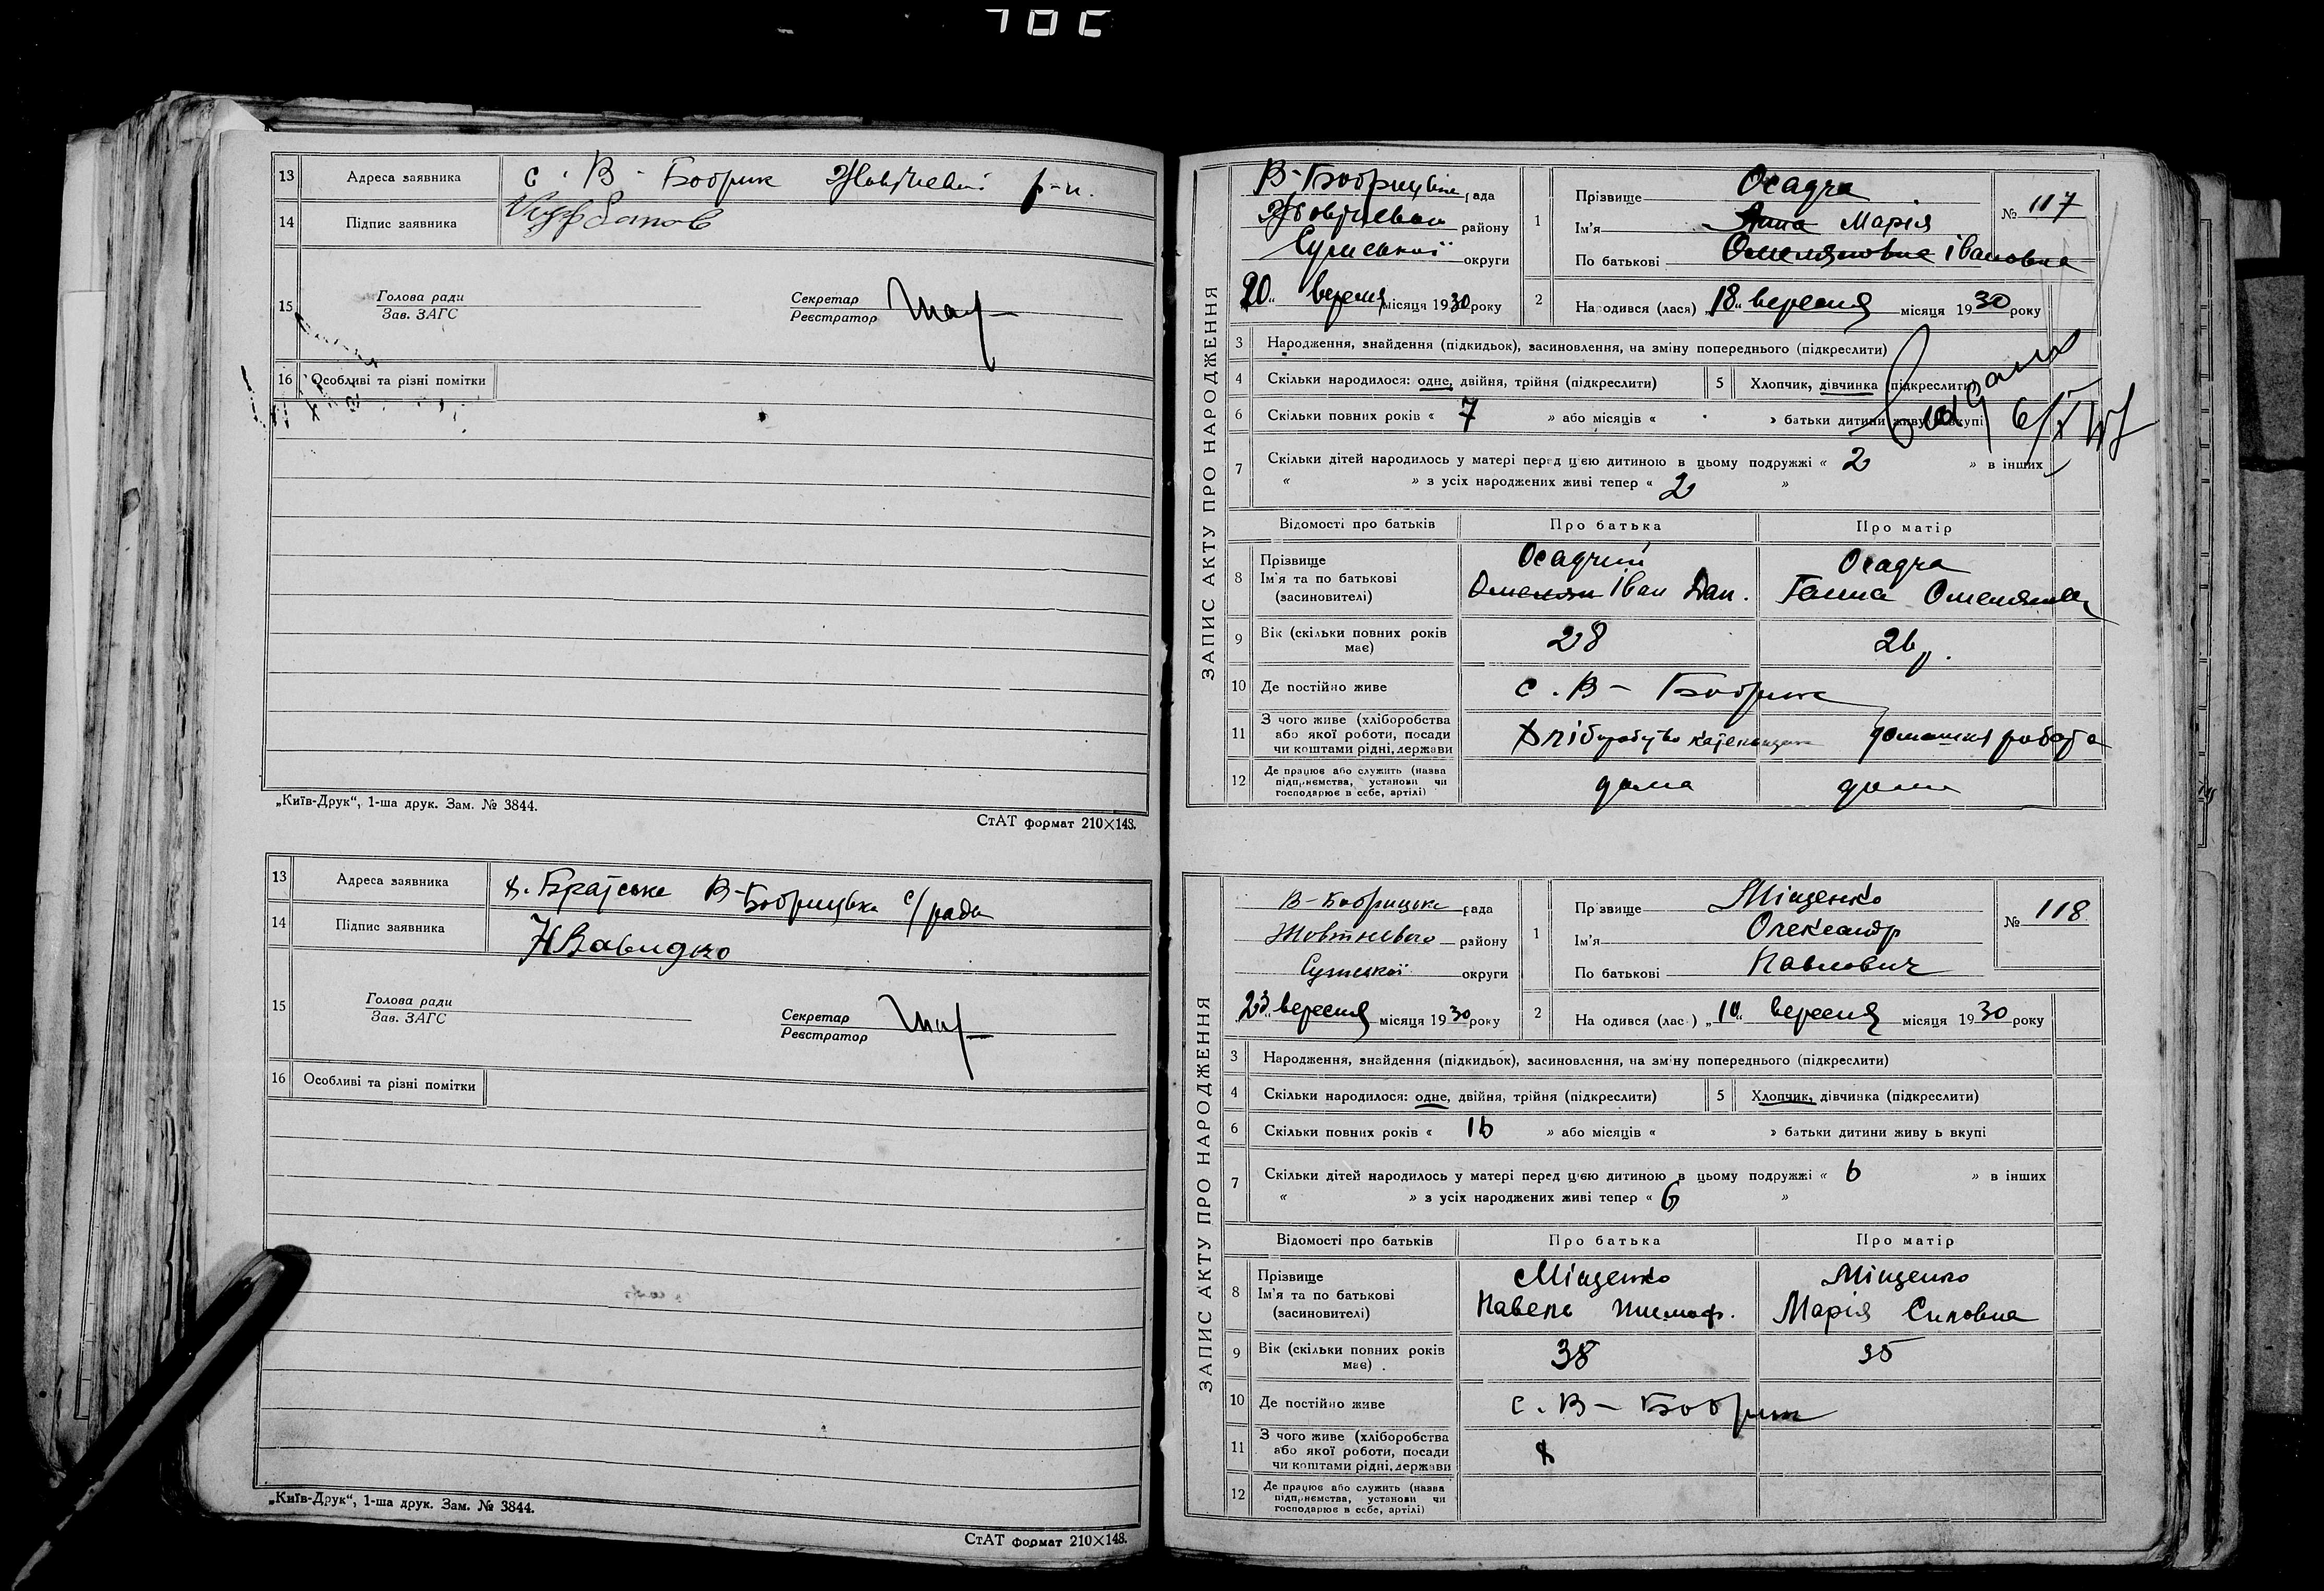 13 Адреса заявника с. В-Бобрик Жовтневий р-н.
14 Підпис заявника
15 Голова ради
Зав. ЗАГС
Секретар
Реєстратор
16 Особливі та різні помітки
„Київ-Друк“, 1-ша друк. Зам. № 3844.
СтАТ формат 210×148.
13 Адреса заявника х. Братське В-Бобрицька с/рада
14 Підпис заявника
15 Голова ради
Зав. ЗАГС
Секретар
Реєстратор
16 Особливі та різні помітки
„Київ-Друк“, 1-ша друк. Зам. № 3844.
СтАТ формат 210×148.
ЗАПИС АКТУ ПРО НАРОДЖЕННЯ
В-Бобрицька рада
Жовтневого району
Сумської округи
20 вересня місяця 1930 року
1 Прізвище Осадча
Ім'я Анна Марія
По батькові Омеляновна Івановна
№ 117
2 Народився (лася) „18“ вересня місяця 1930 року
3 Народження, знайдення (підкидьок), засиновлення, на зміну попереднього (підкреслити)
4 Скільки народилося: одне, двійня, трійня (підкреслити) 5 Хлопчик, дівчинка (підкреслити)
6 Скільки повних років « 7 » або місяців « » батьки дитини живуть вкупі
7 Скільки дітей народилось у матері перед цією дитиною в цьому подружжі « 2 » в інших
« » з усіх народжених живі тепер « 2 »
Відомості про батьків Про батька Про матір
8 Прізвище Осадчий Осадча
Ім'я та по батькові Омелян Іван Дан. Ганна Омелянов
(засиновителі)
9 Вік (скільки повних років має) 28 26 р.
10 Де постійно живе с. В-Бобрик
11 З чого живе (хліборобства
або якої роботи, посади
чи коштами рідні, держави Хліборобство домашня робота
12 Де працює або служить (назва
підприємства, установи чи
господарює в себе, артілі) дома дома
ЗАПИС АКТУ ПРО НАРОДЖЕННЯ
В-Бобрицька рада
Жовтневого району
Сумської округи
23 вересня місяця 1930 року
1 Прізвище Міщенко
Ім'я Олександр
По батькові Павлович
№ 118
2 Народився (лась) „10“ вересня місяця 1930 року
3 Народження, знайдення (підкидьок), засиновлення, на зміну попереднього (підкреслити)
4 Скільки народилося: одне, двійня, трійня (підкреслити) 5 Хлопчик, дівчинка (підкреслити)
6 Скільки повних років « 16 » або місяців « » батьки дитини живуть вкупі
7 Скільки дітей народилось у матері перед цією дитиною в цьому подружжі « 6 » в інших
« » з усіх народжених живі тепер « 6 »
Відомості про батьків Про батька Про матір
8 Прізвище Міщенко Міщенко
Ім'я та по батькові Павель Тимоф. Марія Силовна
(засиновителі)
9 Вік (скільки повних років має) 38 35
10 Де постійно живе с. В-Бобрик
11 З чого живе (хліборобства
або якої роботи, посади
чи коштами рідні, держави х
12 Де працює або служить (назва
підприємства, установи чи
господарює в себе, артілі)